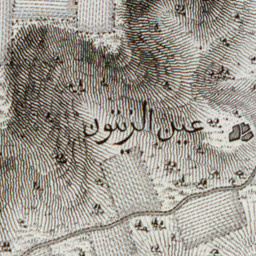 عين الزيتون